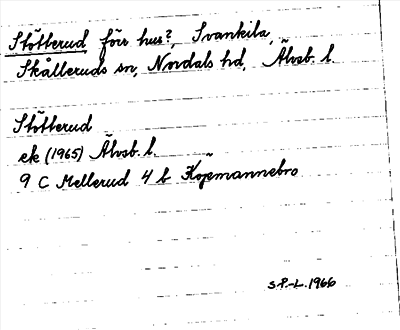 Stötterud förr hus?, Svankila,
Skålleruds sn, Nordals hd, Älvsb. l.
Stötterud
ek (1965) Älvsb. l.
9 C Mellerud 4 b Köpmannebro
S.P.-L. 1966